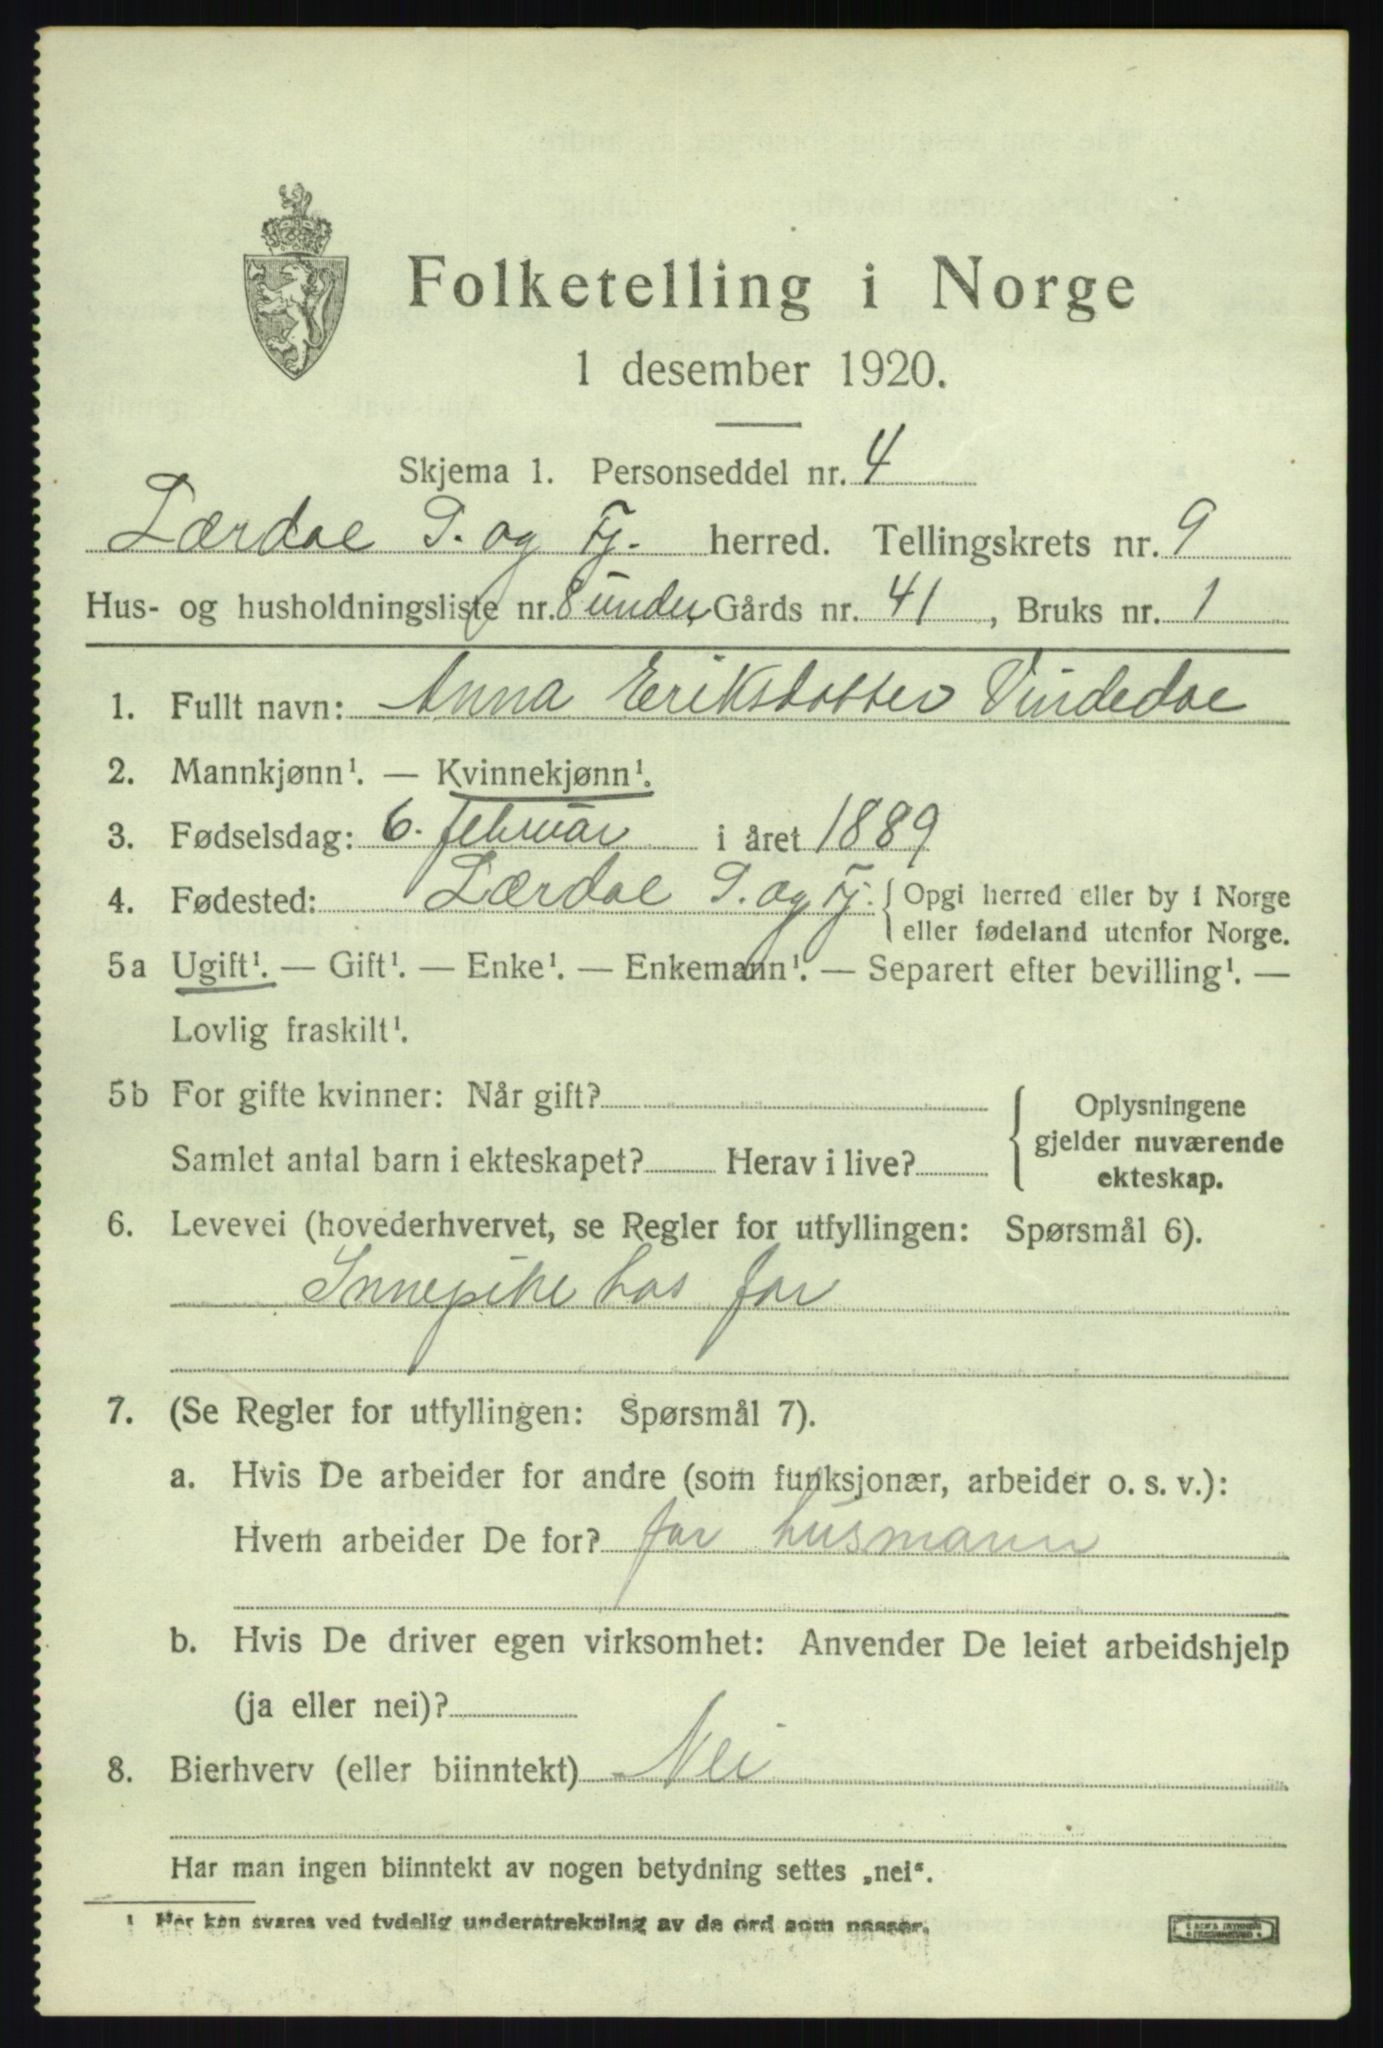 Folketelling i Norge
1 desember 1920.
Skjema 1. Personseddel nr. 4
Lærdal S. og Fj. herred. Tellingskrets nr. 9
Hus- og husholdningsliste nr. 8 under Gårds nr. 41, Bruks nr. 1
1. Fullt navn: Anna Eriksdotter Vindedal
2. Mannkjønn¹. — Kvinnekjønn¹.
3. Fødselsdag: 6. februar i året 1889
4. Fødested: Lærdal S. og Fj. { Opgi herred eller by i Norge
eller fødeland utenfor Norge.
5a Ugift¹. — Gift¹. — Enke¹. — Enkemann¹. — Separert efter bevilling¹. —
Lovlig fraskilt¹.
5b For gifte kvinner: Når gift?
Samlet antal barn i ekteskapet? Herav i live?
Oplysningene
gjelder nuværende
ekteskap.
6. Levevei (hovederhvervet, se Regler for utfyllingen: Spørsmål 6).
Innepike hos far
7. (Se Regler for utfyllingen: Spørsmål 7).
a. Hvis De arbeider for andre (som funksjonær, arbeider o. s. v.):
Hvem arbeider De for? far husmann
b. Hvis De driver egen virksomhet: Anvender De leiet arbeidshjelp
(ja eller nei)?
8. Bierhverv (eller biinntekt) Nei
Har man ingen biinntekt av nogen betydning settes „nei“.
¹ Her kan svares ved tydelig understrekning av de ord som passer.